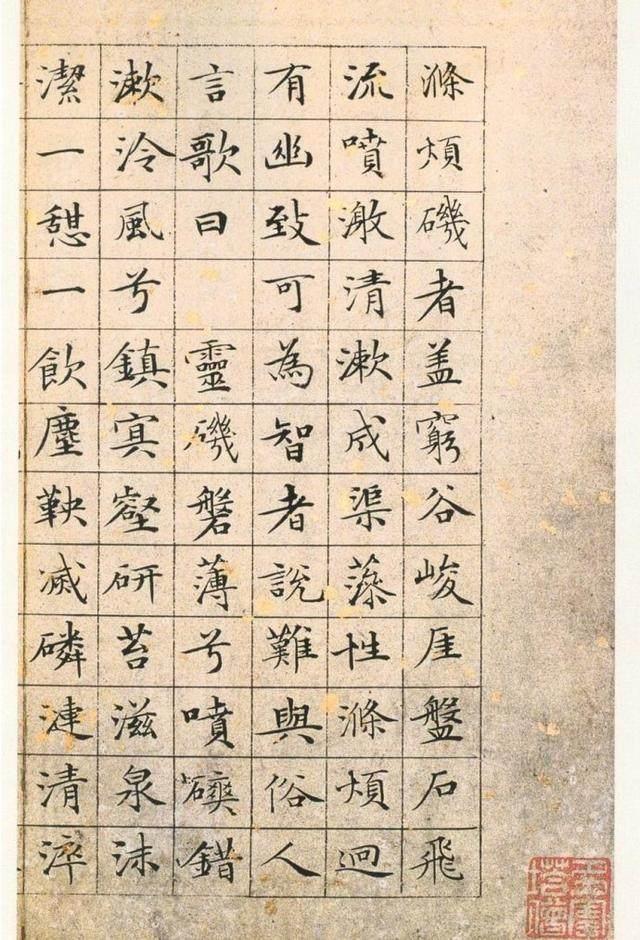 滌煩磯者盖窮谷峻厓盤石飛
流噴激清漱成渠藻性滌煩迥
有幽致可為智者說難與俗人
言歌曰 靈磯磐薄兮噴磢錯
漱泠風兮鎮冥壑研苔滋泉沫
潔一憩一飲塵鞅滅磷漣清淬